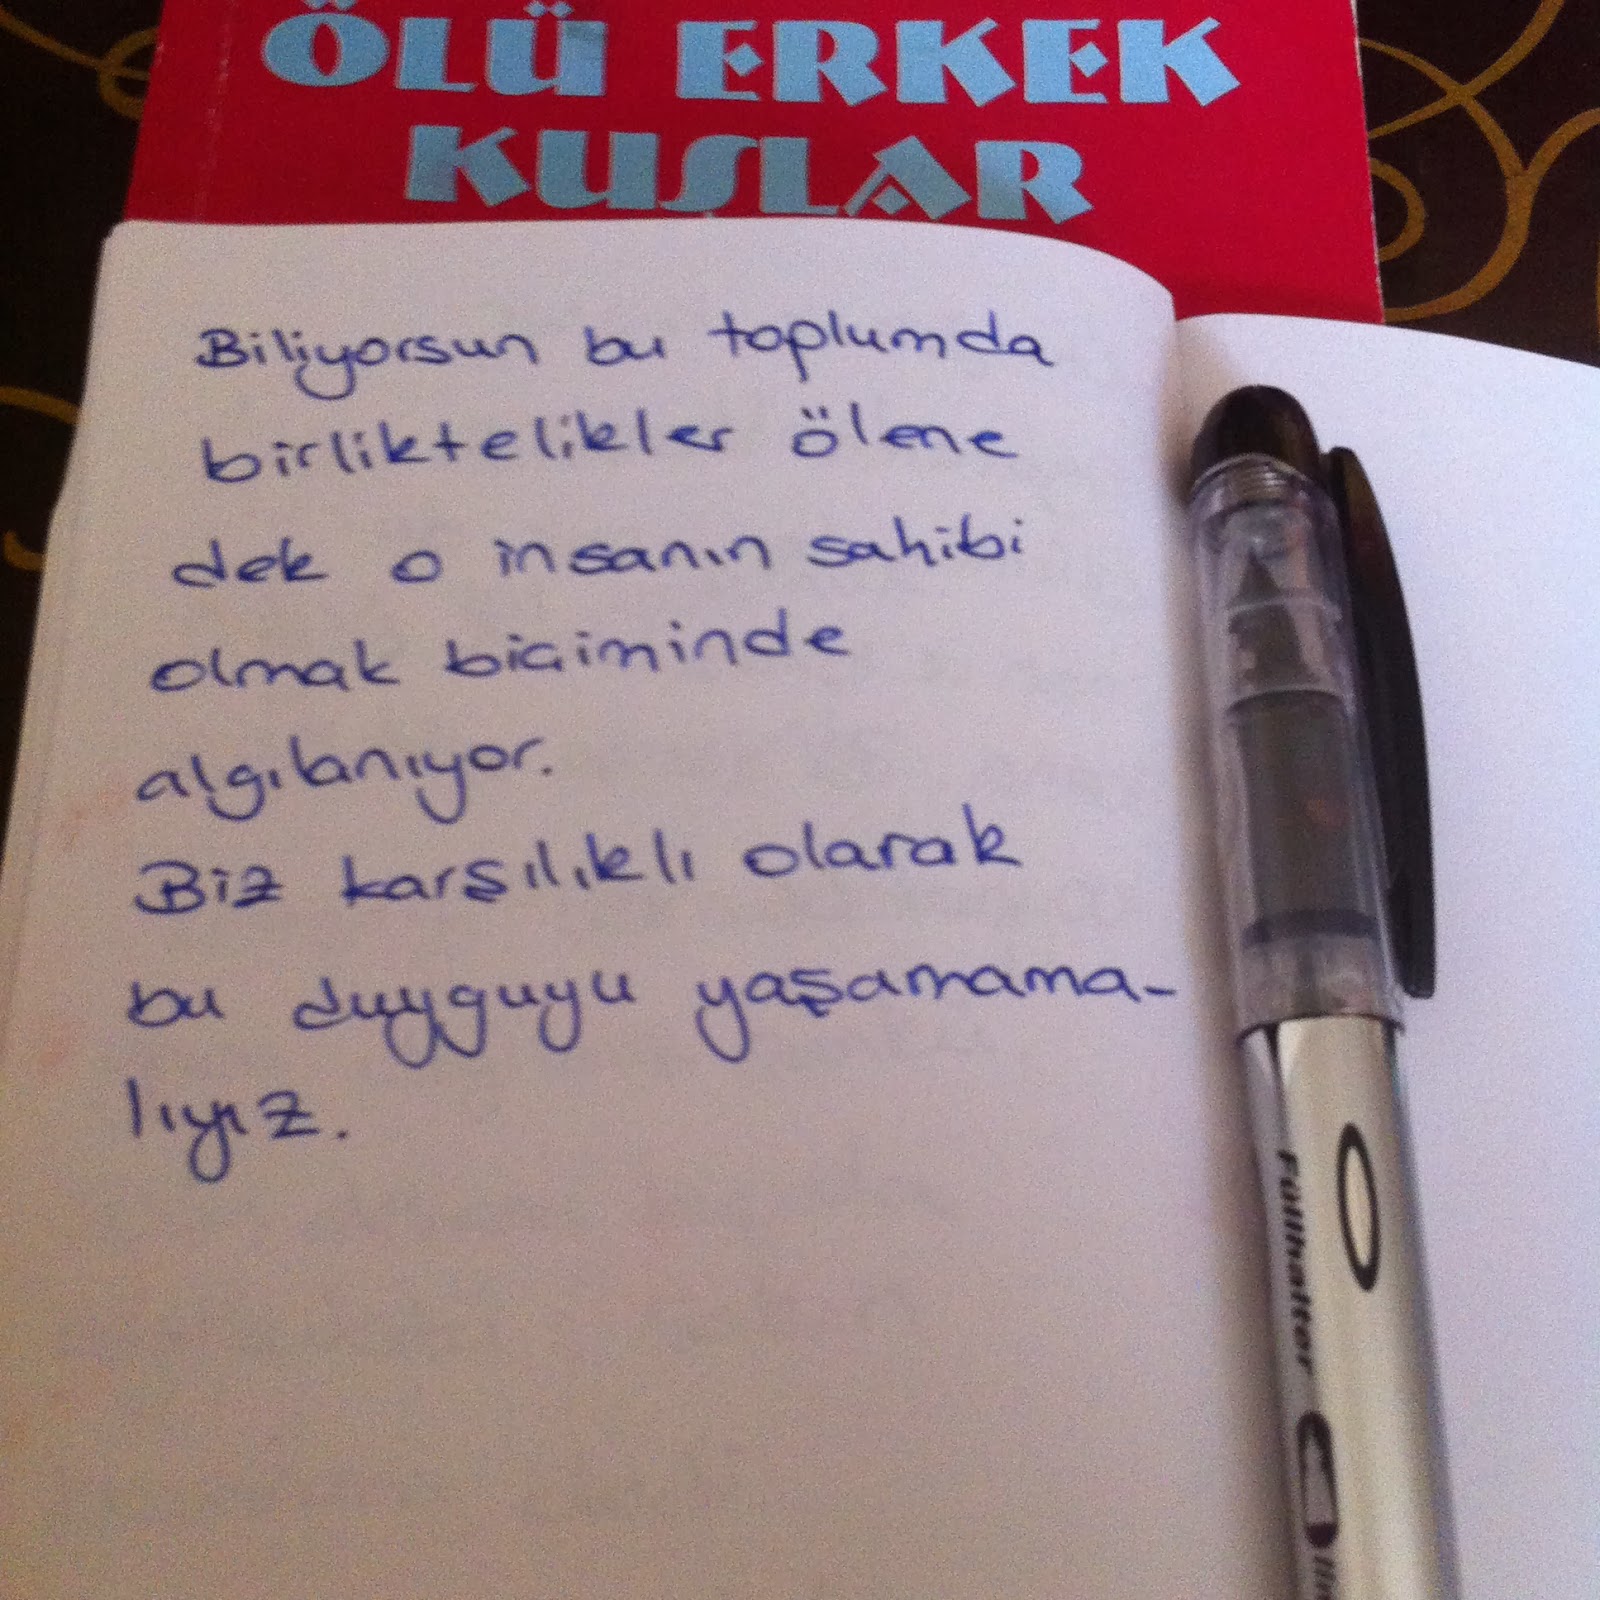 ÖLÜ ERKEK
KUŞLAR
Biliyorsun bu toplumda
birliktelikler ölene
dek o insanın sahibi
olmak biçiminde
algılanıyor.
Biz karşılıklı olarak
bu duyguyu yaşamama-
lıyız.
Füllhalter